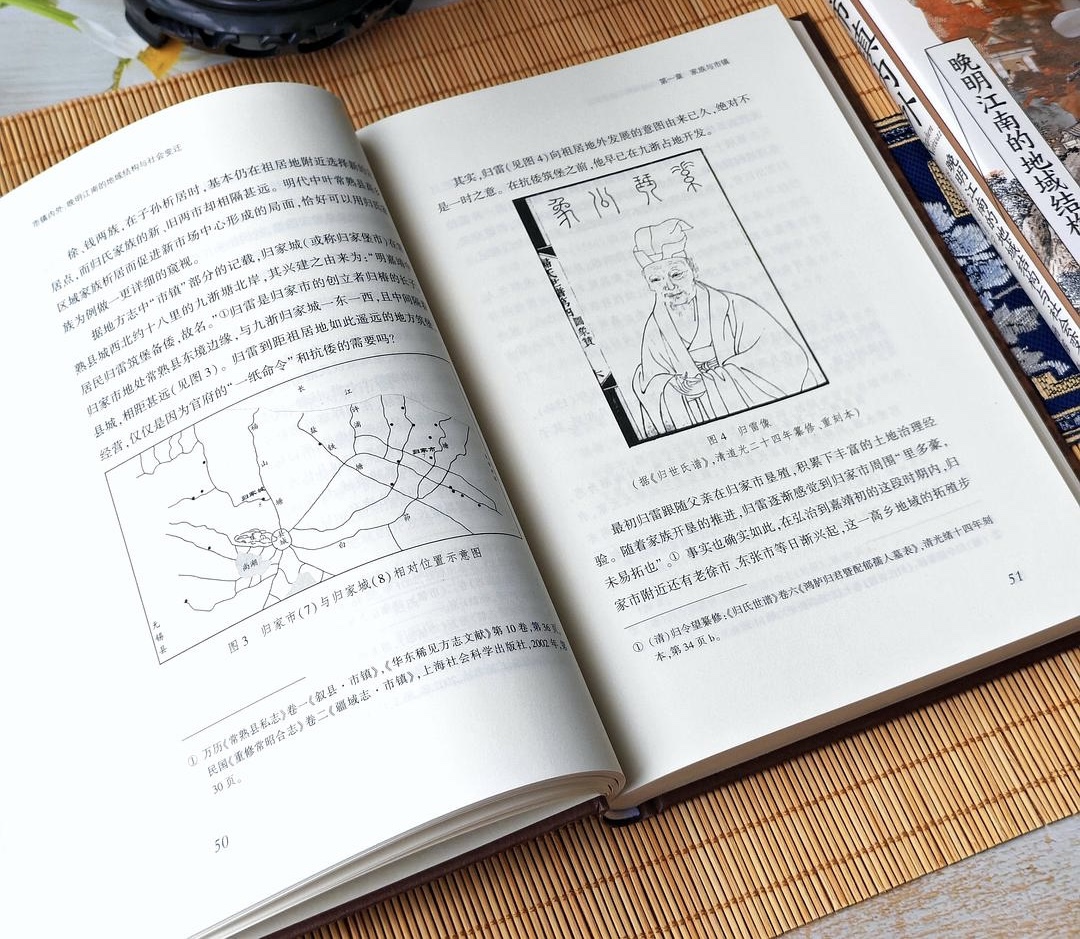 市镇内外：晚明江南的地域结构与社会变迁
徐、钱两族，在子孙析居时，基本仍在祖居地附近选择新的
居点，而归氏家族的新、旧两市却相隔甚远。明代中叶常熟县
区域家族析居而促进新市场中心形成的局面，恰好可以用归氏
族为例做一更详细的窥视。
据地方志中“市镇”部分的记载，归家城（或称归家堡市）在
熟县城西北约十八里的九浙塘北岸，其兴建之由来为：“明嘉靖
居民归雷筑堡备倭，故名。”①归雷是归家市的创立者归椿的长子，
归家市地处常熟县东境边缘，与九浙归家城一东一西，且中间隔
县城，相距甚远（见图3）。归雷到距祖居地如此遥远的地方筑堡
经营，仅仅是因为官府的“一纸命令”和抗倭的需要吗？
长江
福山塘
盐铁塘
许浦
归家市
归家城
尚湖
白茆
无锡县
图3 归家市(7)与归家城(8)相对位置示意图
① 万历《常熟县私志》卷一《叙县·市镇》，《华东稀见方志文献》第10卷，第36页
民国《重修常昭合志》卷二《疆域志·市镇》，上海社会科学出版社，2002年，第
30页。
50
第一章 家族与市镇
其实，归雷（见图4）向祖居地外发展的意图由来已久，绝对不
是一时之意。在抗倭筑堡之前，他早已在九浙占地开发。
图4 归雷像
（据《归世氏谱》，清道光二十四年纂修、重刻本）
最初归雷跟随父亲在归家市垦殖，积累下丰富的土地治理经
验。随着家族开垦的推进，归雷逐渐感觉到归家市周围“里多豪，
未易拓也”。① 事实也确实如此，在弘治到嘉靖初的这段时期内，归
家市附近还有老徐市、东张市等日渐兴起，这一高乡地域的拓殖步
① （清）归令望纂修：《归氏世谱》卷六《鸿胪归君暨配郁孺人墓表》，清光绪十四年刻
本，第34页b。
51
晚明江南的地域结构
晚明江南的地域结构与社会变